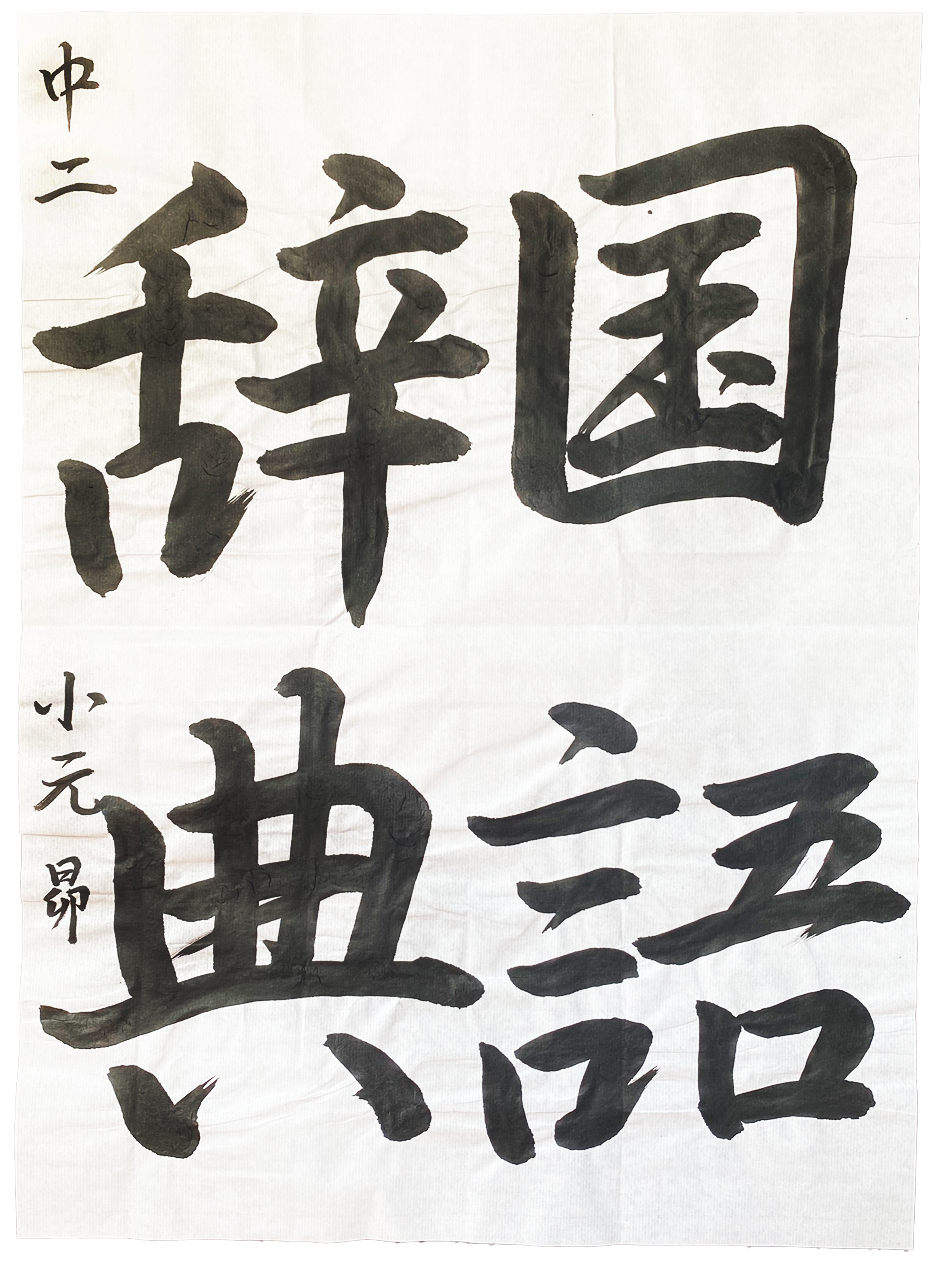 国語
辞典
中二 小元昴